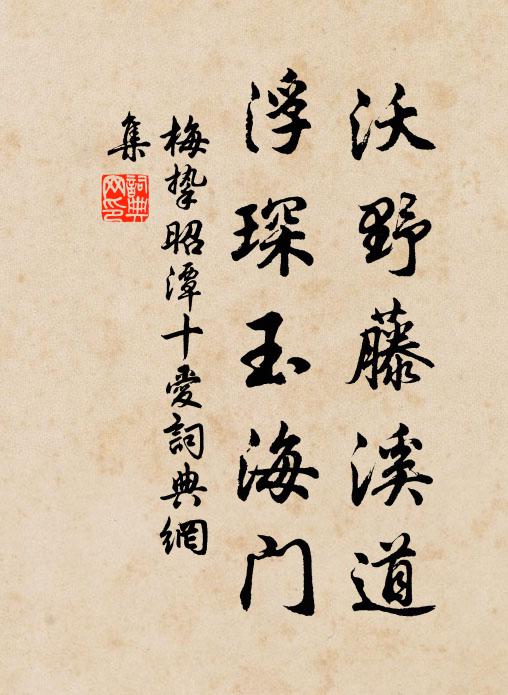 沃野藤溪道
浮琛玉海门
梅挚昭潭十爱詞典網
集
詞典网印